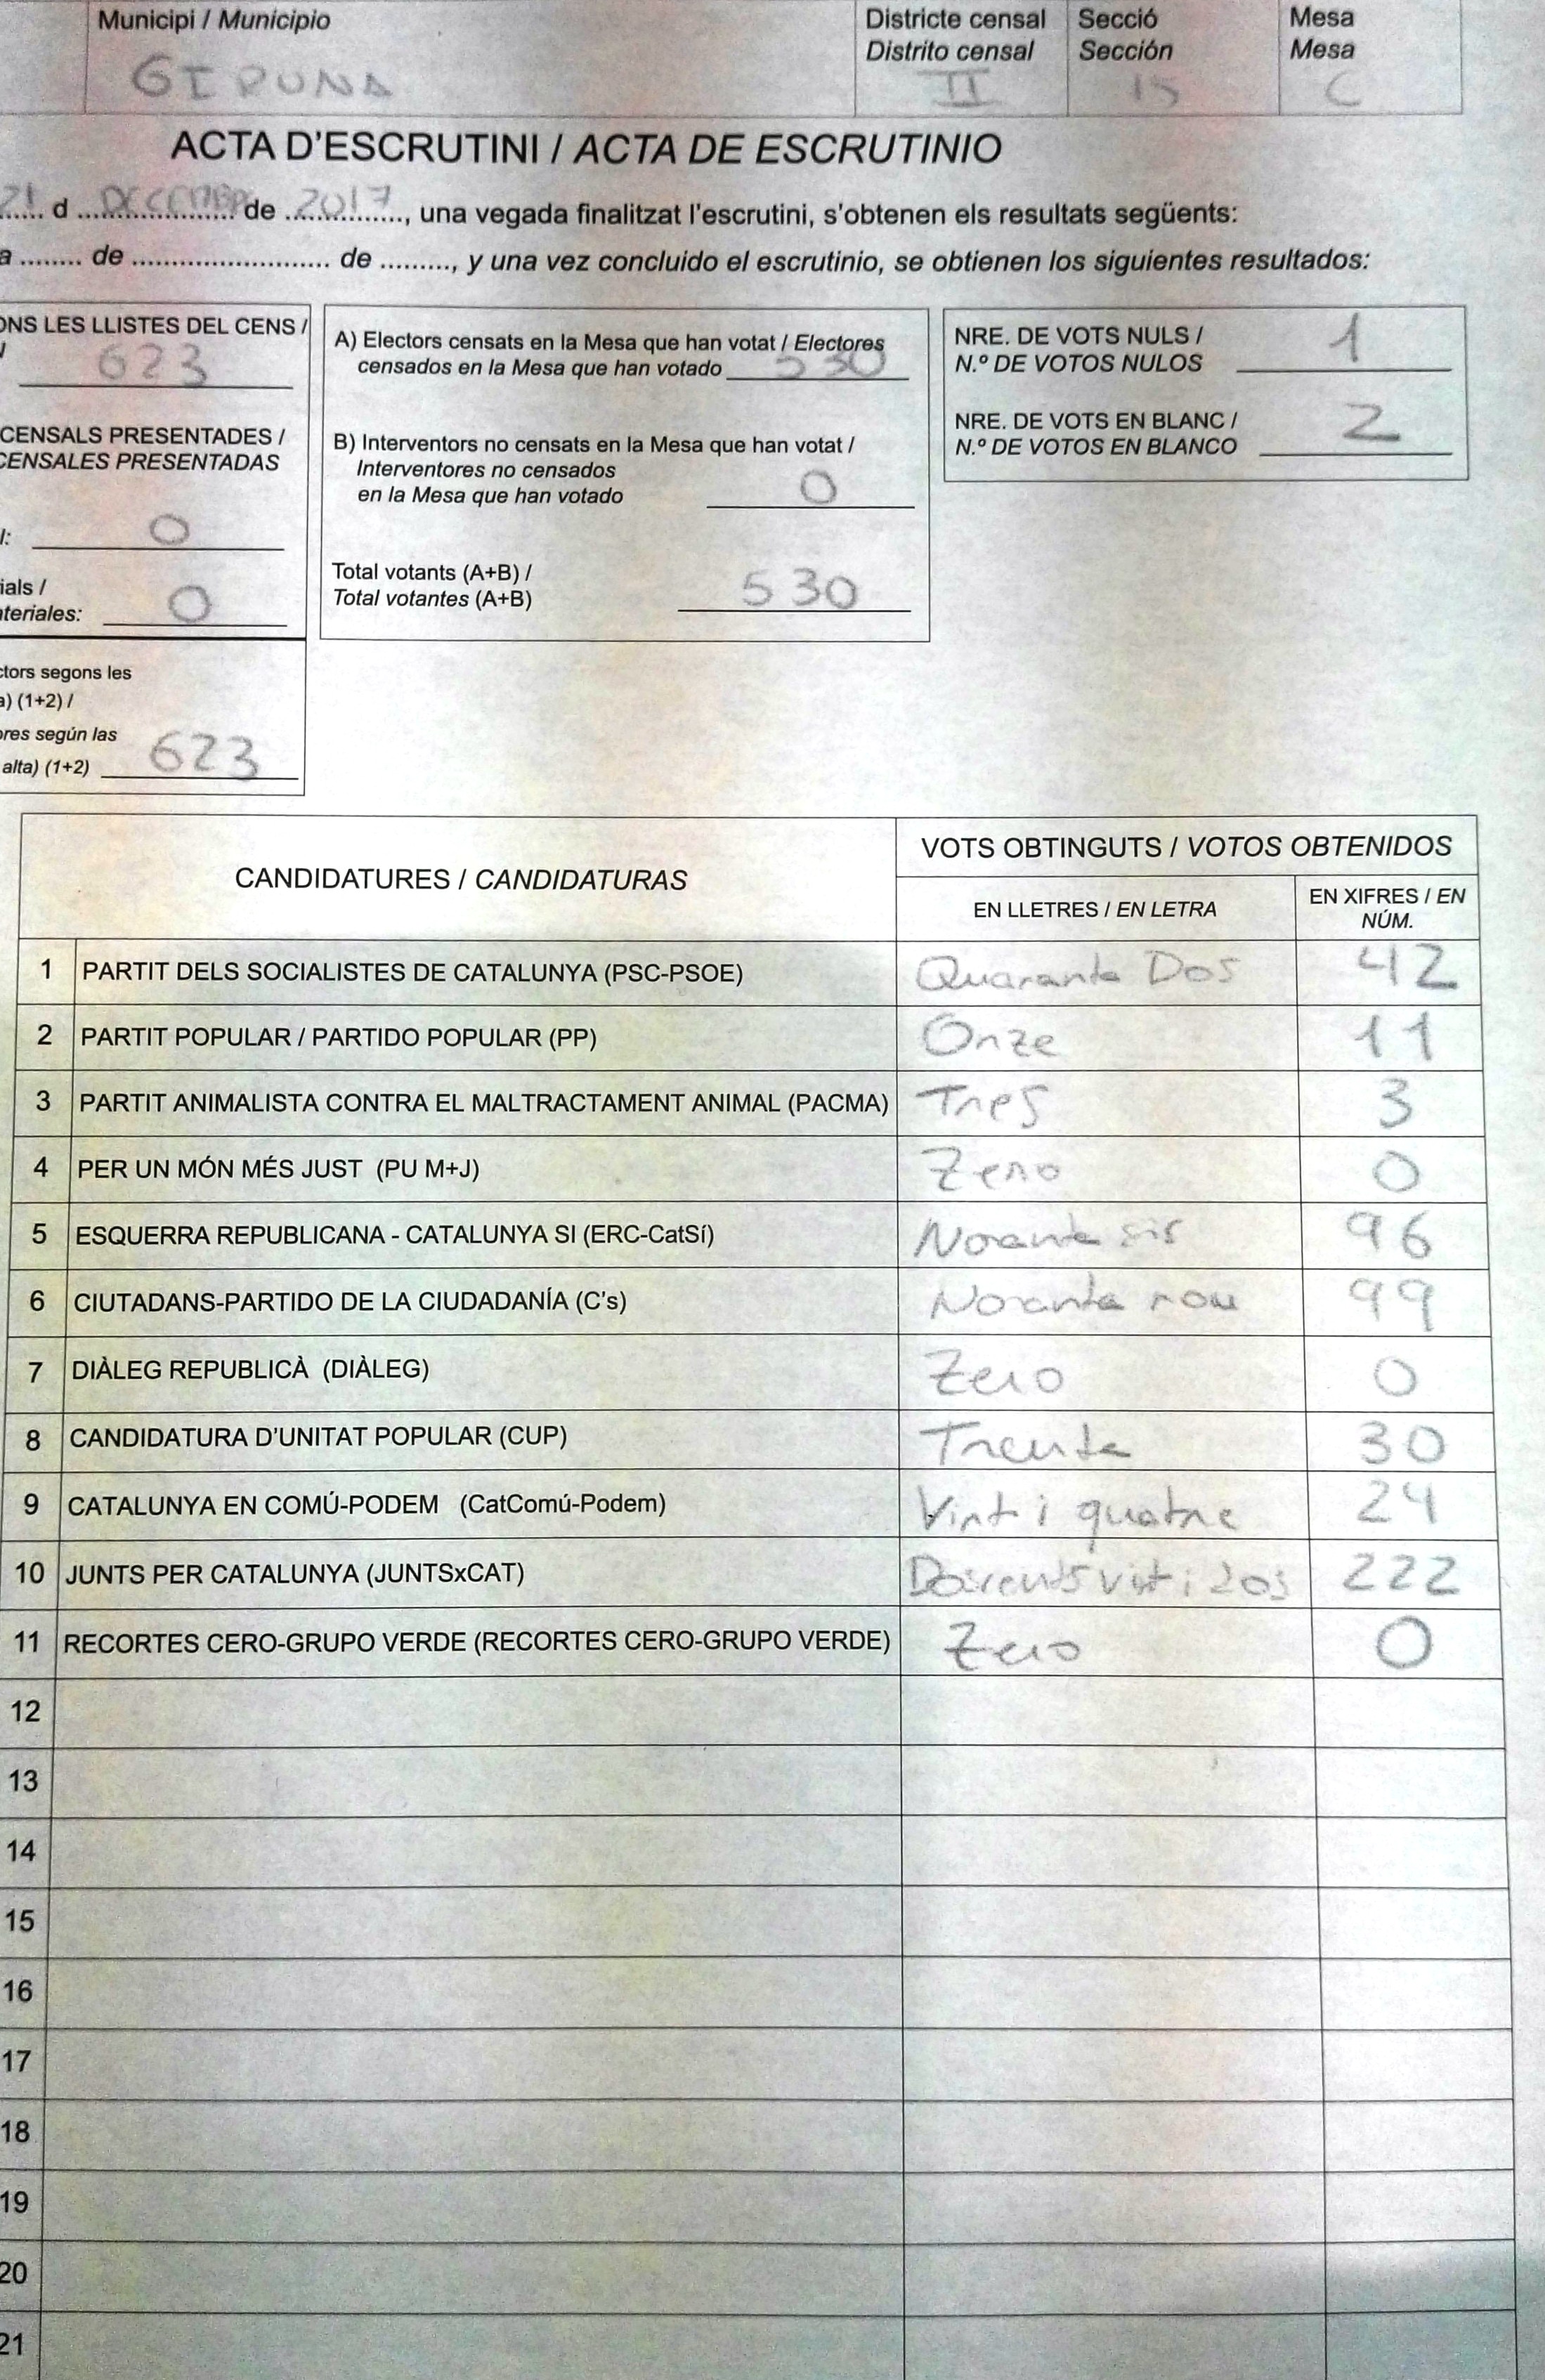 Municipi / Municipio
Districte censal
Distrito censal
Secció
Sección
Mesa
Mesa
GIRONA
II
15
C
ACTA D'ESCRUTINI / ACTA DE ESCRUTINIO
21 d DECEMBRE de 2017, una vegada finalitzat l'escrutini, s'obtenen els resultats següents:
a ........ de .......................... de ........., y una vez concluido el escrutinio, se obtienen los siguientes resultados:
ONS LES LLISTES DEL CENS /
623
CENSALS PRESENTADES /
CENSALES PRESENTADAS
l: 0
ials /
ateriales: 0
ctors segons les
a) (1+2) /
ores según las
alta) (1+2) 623
A) Electors censats en la Mesa que han votat / Electores
censados en la Mesa que han votado 530
B) Interventors no censats en la Mesa que han votat /
Interventores no censados
en la Mesa que han votado 0
Total votants (A+B) /
Total votantes (A+B) 530
NRE. DE VOTS NULS /
N.º DE VOTOS NULOS 1
NRE. DE VOTS EN BLANC /
N.º DE VOTOS EN BLANCO 2
CANDIDATURES / CANDIDATURAS
VOTS OBTINGUTS / VOTOS OBTENIDOS
EN LLETRES / EN LETRA
EN XIFRES / EN
NÚM.
1 PARTIT DELS SOCIALISTES DE CATALUNYA (PSC-PSOE) Quaranta Dos 42
2 PARTIT POPULAR / PARTIDO POPULAR (PP) Onze 11
3 PARTIT ANIMALISTA CONTRA EL MALTRACTAMENT ANIMAL (PACMA) Tres 3
4 PER UN MÓN MÉS JUST (PU M+J) Zero 0
5 ESQUERRA REPUBLICANA - CATALUNYA SI (ERC-CatSí) Noranta sis 96
6 CIUTADANS-PARTIDO DE LA CIUDADANÍA (C's) Noranta nou 99
7 DIÀLEG REPUBLICÀ (DIÀLEG) Zero 0
8 CANDIDATURA D'UNITAT POPULAR (CUP) Trenta 30
9 CATALUNYA EN COMÚ-PODEM (CatComú-Podem) Vint i quatre 24
10 JUNTS PER CATALUNYA (JUNTSxCAT) Doscents vint i dos 222
11 RECORTES CERO-GRUPO VERDE (RECORTES CERO-GRUPO VERDE) Zero 0
12
13
14
15
16
17
18
19
20
21